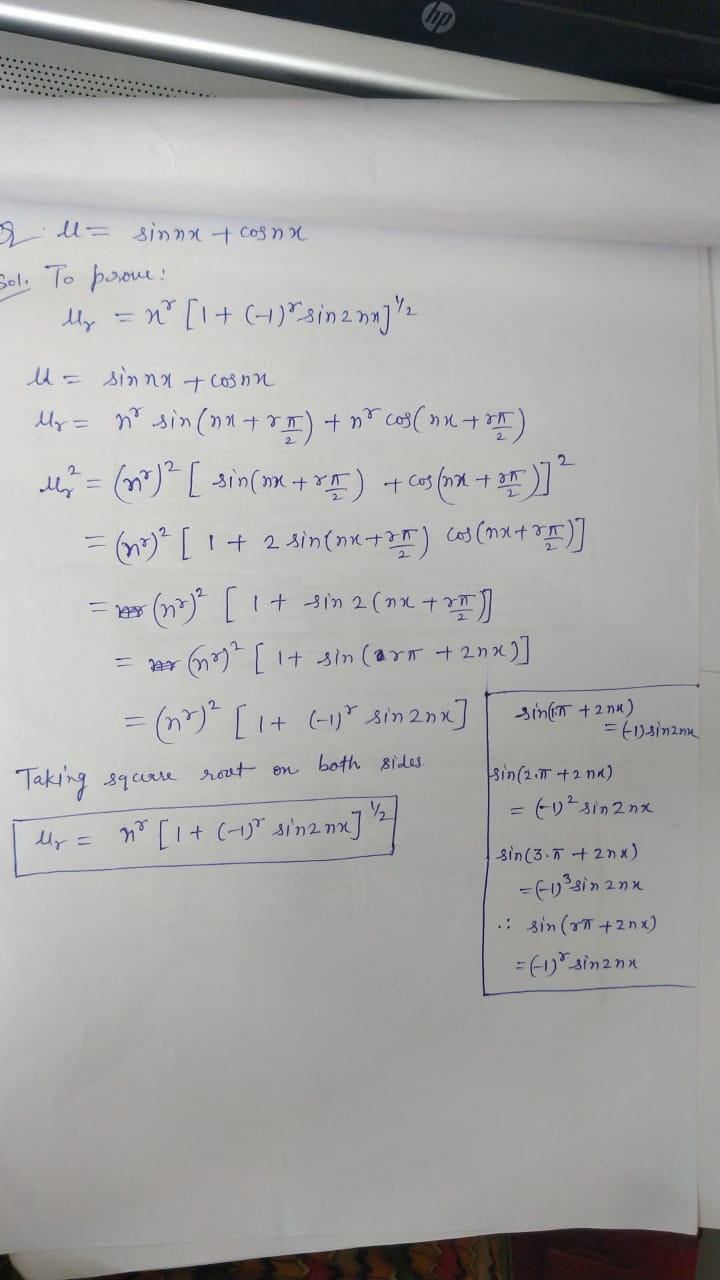 hp
Q. u = sin nx + cos nx
Sol. To prove:
u_r = n^r [1 + (-1)^r sin 2nx]^1/2
u = sin nx + cos nx
u_r = n^r sin(nx + rπ/2) + n^r cos(nx + rπ/2)
u_r^2 = (n^r)^2 [sin(nx + rπ/2) + cos(nx + rπ/2)]^2
= (n^r)^2 [1 + 2 sin(nx + rπ/2) cos(nx + rπ/2)]
= (n^r)^2 [1 + sin 2(nx + rπ/2)]
= (n^r)^2 [1 + sin(rπ + 2nx)]
= (n^r)^2 [1 + (-1)^r sin 2nx]
Taking square root on both sides.
u_r = n^r [1 + (-1)^r sin 2nx]^1/2
sin(1.π + 2nx)
= (-1) sin 2nx
sin(2.π + 2nx)
= (-1)^2 sin 2nx
sin(3.π + 2nx)
= (-1)^3 sin 2nx
∴ sin(rπ + 2nx)
= (-1)^r sin 2nx